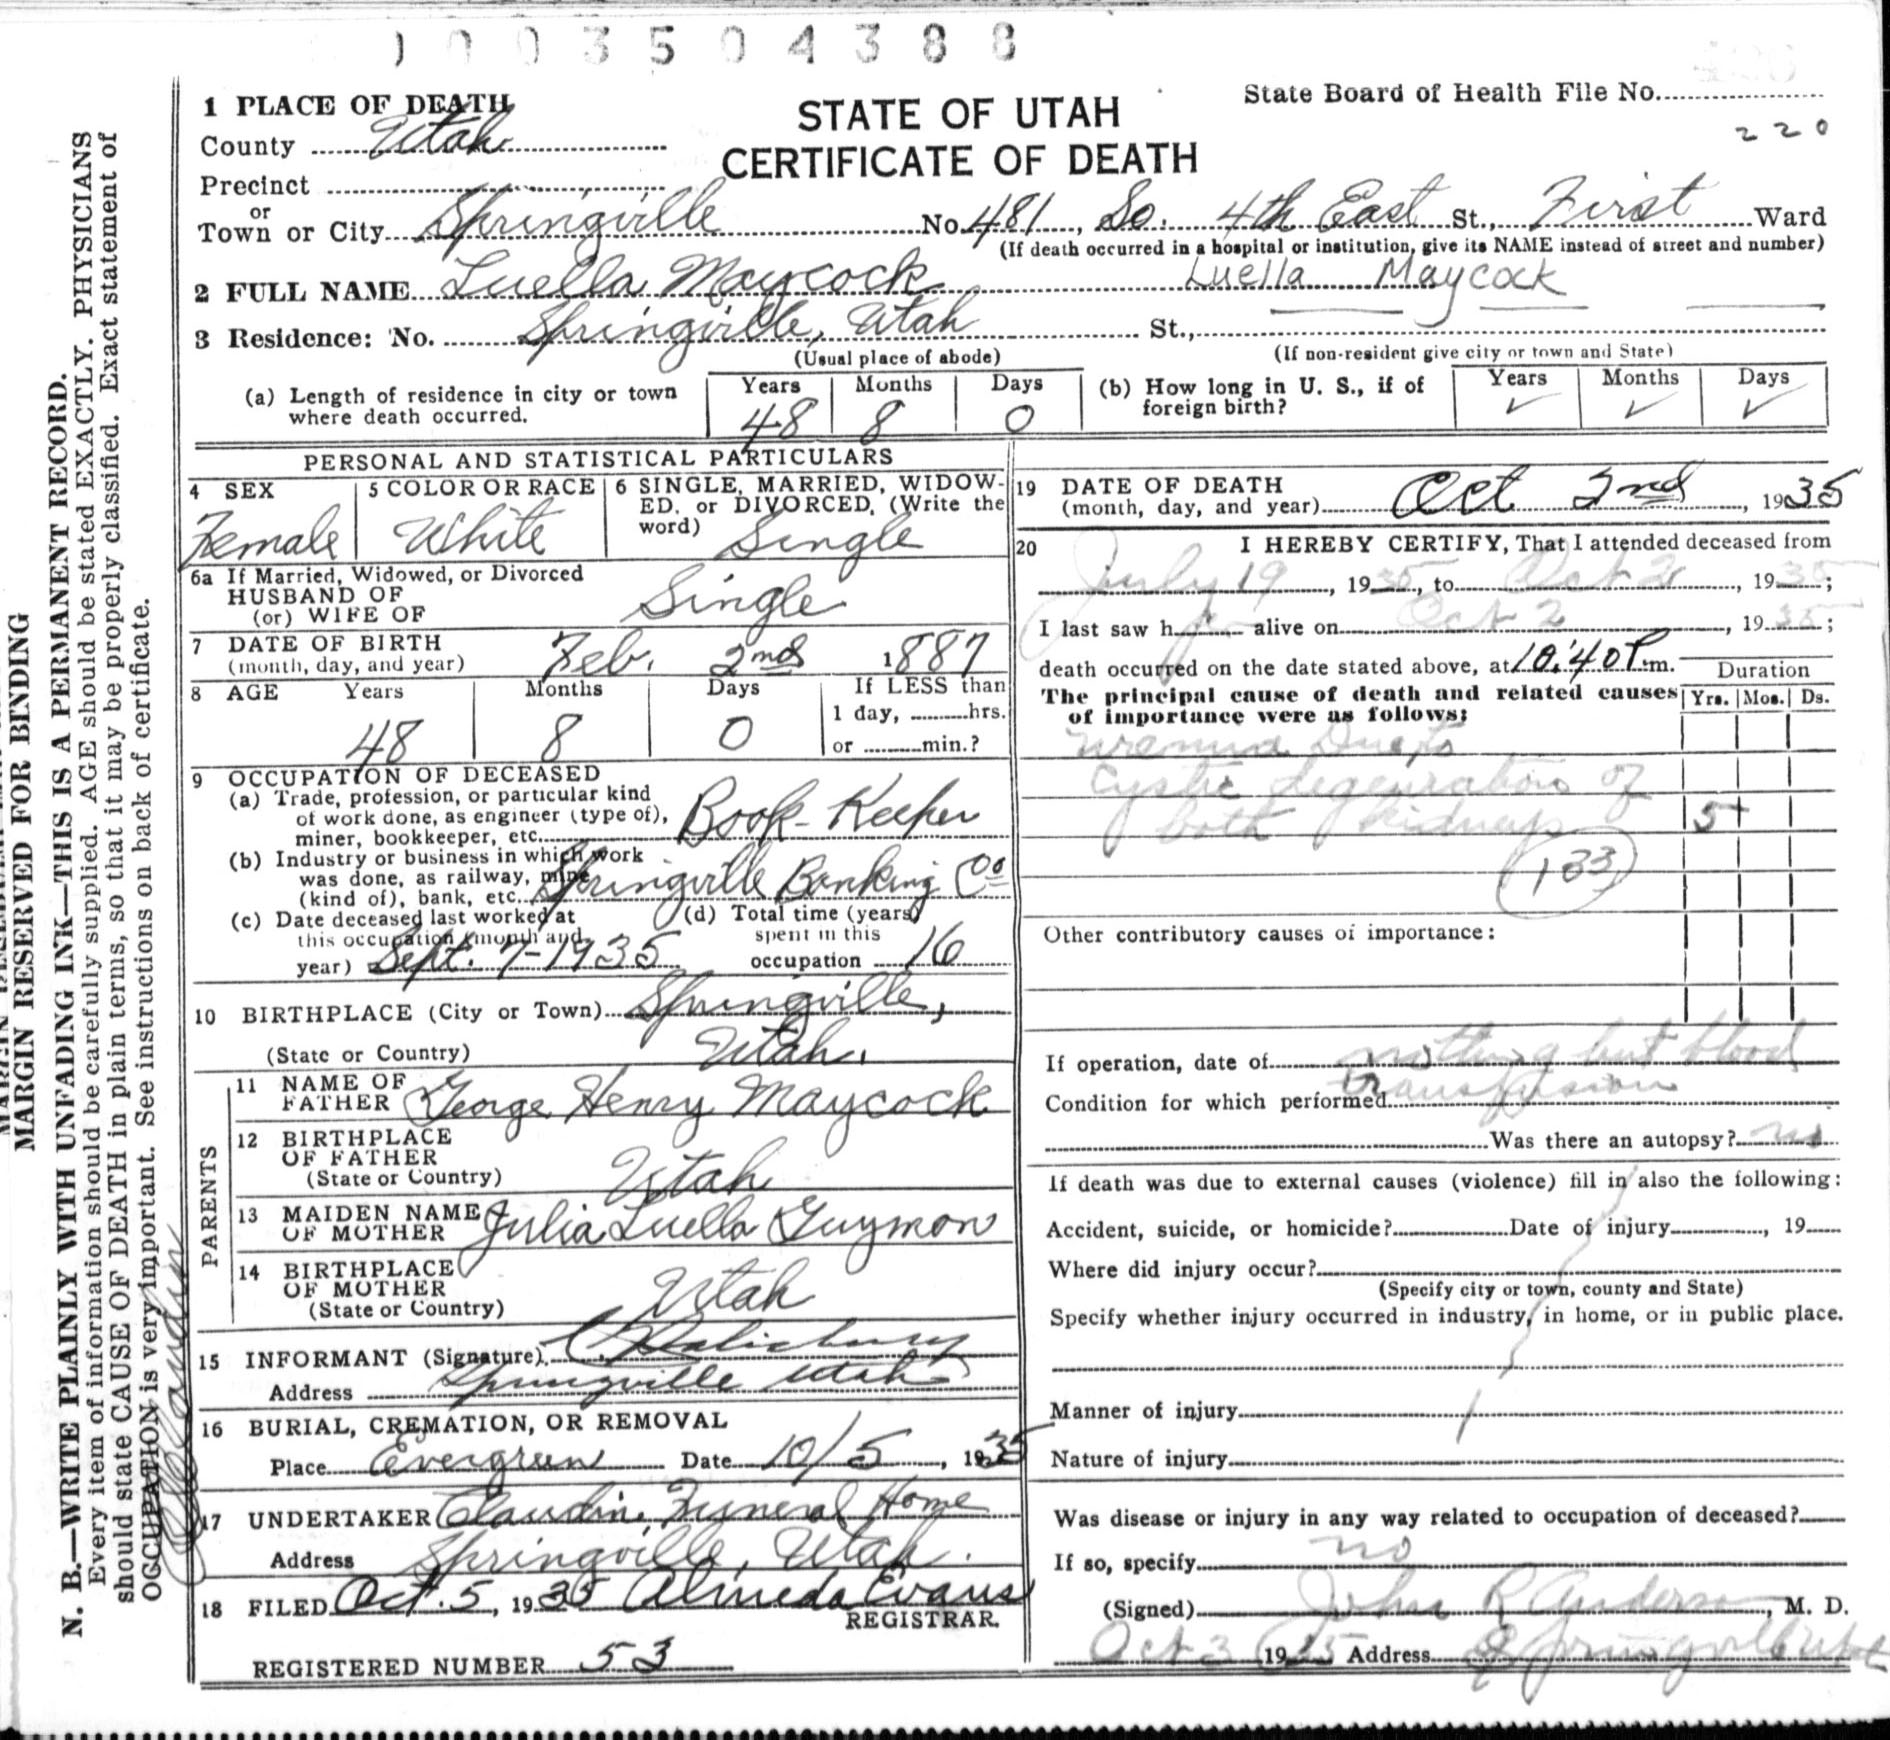 1003504388
1 PLACE OF DEATH
STATE OF UTAH
CERTIFICATE OF DEATH
State Board of Health File No.
220
County Utah
Precinct
or
Town or City Springville No. 481, So. 4th East St., First Ward
(If death occurred in a hospital or institution, give its NAME instead of street and number)
2 FULL NAME Luella Maycock Luella Maycock
3 Residence: No. Springville, Utah St.,
(Usual place of abode) (If non-resident give city or town and State)
(a) Length of residence in city or town where death occurred. Years 48 Months 8 Days 0
(b) How long in U. S., if of foreign birth? Years ✓ Months ✓ Days ✓
PERSONAL AND STATISTICAL PARTICULARS
4 SEX Female
5 COLOR OR RACE White
6 SINGLE, MARRIED, WIDOWED, or DIVORCED, (Write the word) Single
6a If Married, Widowed, or Divorced
HUSBAND OF
(or) WIFE OF Single
7 DATE OF BIRTH
(month, day, and year) Feb. 2nd 1887
8 AGE Years 48 Months 8 Days 0 If LESS than
1 day, hrs.
or min.?
9 OCCUPATION OF DECEASED
(a) Trade, profession, or particular kind
of work done, as engineer (type of),
miner, bookkeeper, etc. Book-Keeper
(b) Industry or business in which work
was done, as railway, mine
(kind of), bank, etc. Springville Banking Co
(c) Date deceased last worked at
this occupation (month and
year) Sept. 7-1935
(d) Total time (years)
spent in this
occupation 16
10 BIRTHPLACE (City or Town) Springville,
(State or Country) Utah.
PARENTS
11 NAME OF
FATHER George Henry Maycock
12 BIRTHPLACE
OF FATHER
(State or Country) Utah
13 MAIDEN NAME
OF MOTHER Julia Luella Guymon
14 BIRTHPLACE
OF MOTHER
(State or Country) Utah
15 INFORMANT (Signature) Salisbury
Address Springville Utah
16 BURIAL, CREMATION, OR REMOVAL
Place Evergreen Date 10/5, 1935
17 UNDERTAKER Claudin Funeral Home
Address Springville, Utah.
18 FILED Oct. 5, 1935 Almeda Evans
REGISTRAR.
REGISTERED NUMBER 53
19 DATE OF DEATH
(month, day, and year) Oct 2nd, 1935
20 I HEREBY CERTIFY, That I attended deceased from
July 19, 1935, to Oct 2, 1935;
I last saw h alive on Oct 2, 1935;
death occurred on the date stated above, at 10:40 P.m.
Duration
The principal cause of death and related causes
of importance were as follows:
Yrs. Mos. Ds.
Uremia Due to
Cystic degeneration of
both kidneys 5+
133
Other contributory causes of importance:
If operation, date of nothing but blood
Condition for which performed transfusion
Was there an autopsy? no
If death was due to external causes (violence) fill in also the following:
Accident, suicide, or homicide? Date of injury, 19
Where did injury occur?
(Specify city or town, county and State)
Specify whether injury occurred in industry, in home, or in public place.
Manner of injury
Nature of injury
Was disease or injury in any way related to occupation of deceased?
If so, specify no
(Signed) John R Anderson, M. D.
Oct 3 1935 Address Springville Utah
MARGIN RESERVED FOR BINDING
N. B.—WRITE PLAINLY WITH UNFADING INK—THIS IS A PERMANENT RECORD.
Every item of information should be carefully supplied. AGE should be stated EXACTLY. PHYSICIANS
should state CAUSE OF DEATH in plain terms, so that it may be properly classified. Exact statement of
OCCUPATION is very important. See instructions on back of certificate.